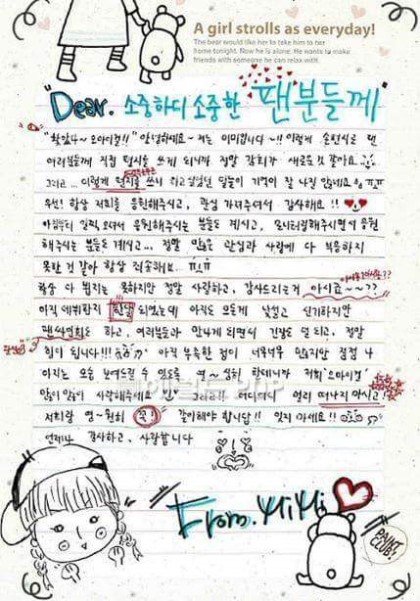 A girl strolls as everyday!
The bear would like her to take him to her
home tonight. Now he is alone. He wants to make
friends with someone he can relax with.
"Dear. 소중하디 소중한 팬분들께"
안녕하세요~ 저는 미미입니다~!! 이렇게 손편지로 팬
여러분들께 직접 편지를 쓰게 되니까 정말 감회가 새로운것 같아요
그리고... 이렇게 편지를 쓰니 하고싶었던 말들이 기억이 잘 나질 않네요 ㅠㅠ
우선! 항상 저희를 응원해주시고, 관심 가져주셔서 감사해요!!
아침부터 일찍 오셔서 응원해주시는 분들도 계시고, 모니터링해주시면서 응원
해주시는 분들도 계시고... 정말 많은 관심과 사랑에 다 보답하지
못한 것 같아 항상 죄송해요.. ㅠㅠ
항상 다 뵙지는 못하지만 정말 사랑하고, 감사드리는거 아시죠~~??
아직 데뷔한지 한달 되었는데 아직도 모든게 낯설고 신기하지만
팬싸인회도 하고, 여러분들과 만나게 되면서 긴장도 덜 되고, 정말
힘이 됩니다!!! 아직 부족한 점이 너무너무 많지만 점점 나
아지는 모습 보여드릴 수 있도록 열~심히 할테니까 저희 "오마이걸"
많이많이 사랑해주세요 그리고!! 어디어디 멀리 떠나지 마시고!
저희랑 영~원히 꼭! 같이해야 합니다!! 잊지 마세요!!
언제나 감사하고, 사랑합니다
From. 미미
PAINT CLUB!